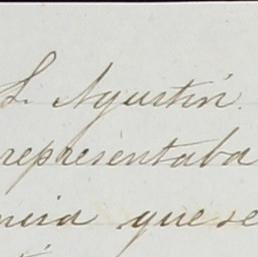 S. Agustin.
representaba
ncia que se